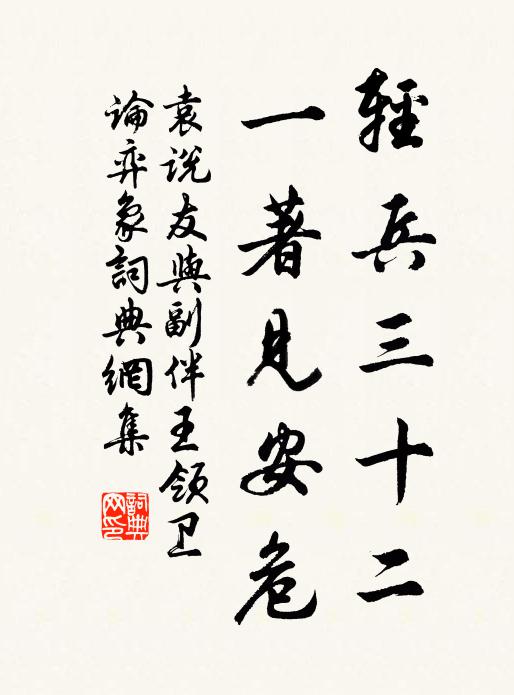 輕兵三十二
一著見安危
袁説友與副伴王領卫
論弈象詞典網集
詞典
网印